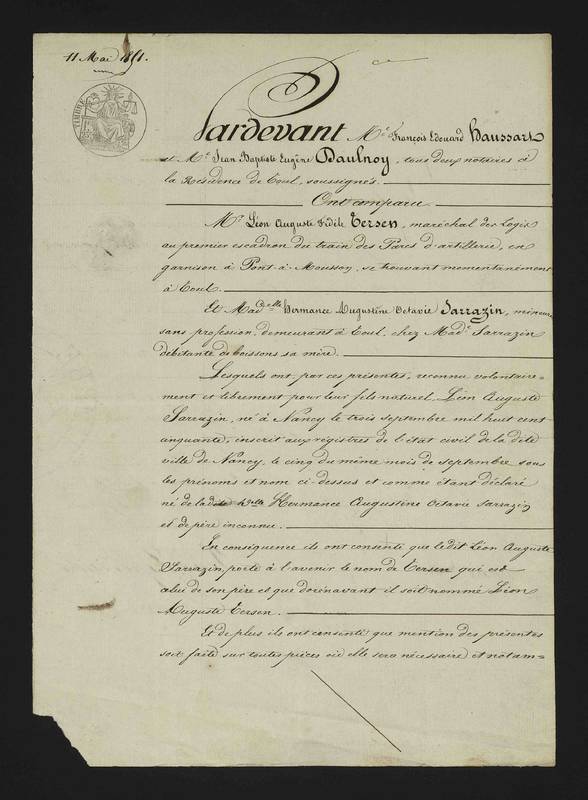 11 Mai 1851.
TIMBRE
Pardevant Me François Edouard Haussart
et Me Jean Baptiste Eugène Daulnoy, tous deux notaires à
la Résidence de Toul, soussignés.
Ont comparu
Mr Léon Auguste Fidèle Tersen, maréchal des Logis
au premier escadron du train des Parcs d'artillerie, en
garnison à Pont-à-Mousson, se trouvant momentanément
à Toul.
Et Madelle Hermance Augustine Octavie Sarrazin, mineure
sans profession, demeurant à Toul, chez Made Sarrazin
débitante de boissons sa mère.
Lesquels ont par ces présentes, reconnu volontaire-
ment et librement pour leur fils naturel Léon Auguste
Sarrazin, né à Nancy le trois septembre mil huit cent
cinquante, inscrit aux régistres de l'état civil de la dite
ville de Nancy, le cinq du même mois de septembre sous
les prénoms et nom ci-dessus et comme étant déclaré
né de la dite Delle Hermance Augustine Octavie Sarrazin
et de père inconnu.
En conséquence ils ont consenti que ledit Léon Auguste
Sarrazin porte à l'avenir le nom de Tersen qui est
celui de son père et que dorénavant il soit nommé Léon
Auguste Tersen.
Et de plus ils ont consenti que mention des présentes
soit faite sur toutes pièces où elle sera nécessaire et notam=